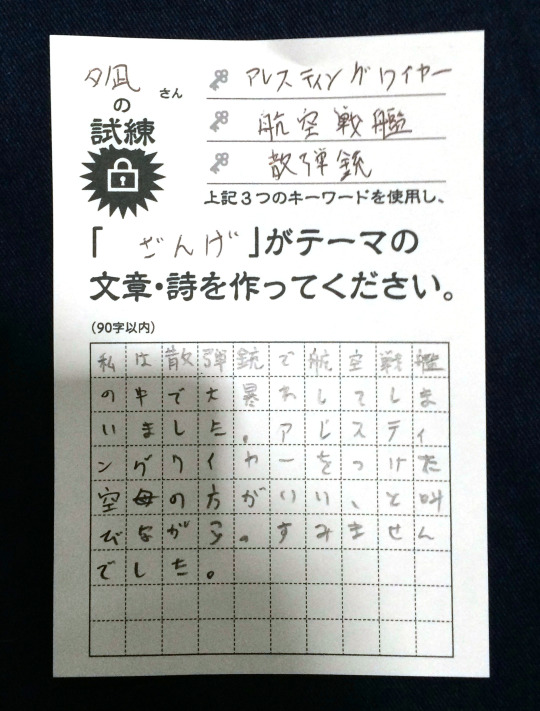 夕凪さん
の
試練
アレスティングワイヤー
航空戦艦
散弾銃
上記3つのキーワードを使用し、
「ざんげ」がテーマの
文章・詩を作ってください。
(90字以内)
私は散弾銃で航空戦艦
の中で大暴れしてしま
いました。アレスティ
ングワイヤーをつけた
空母の方がいい、と叫
びながら。すみません
でした。